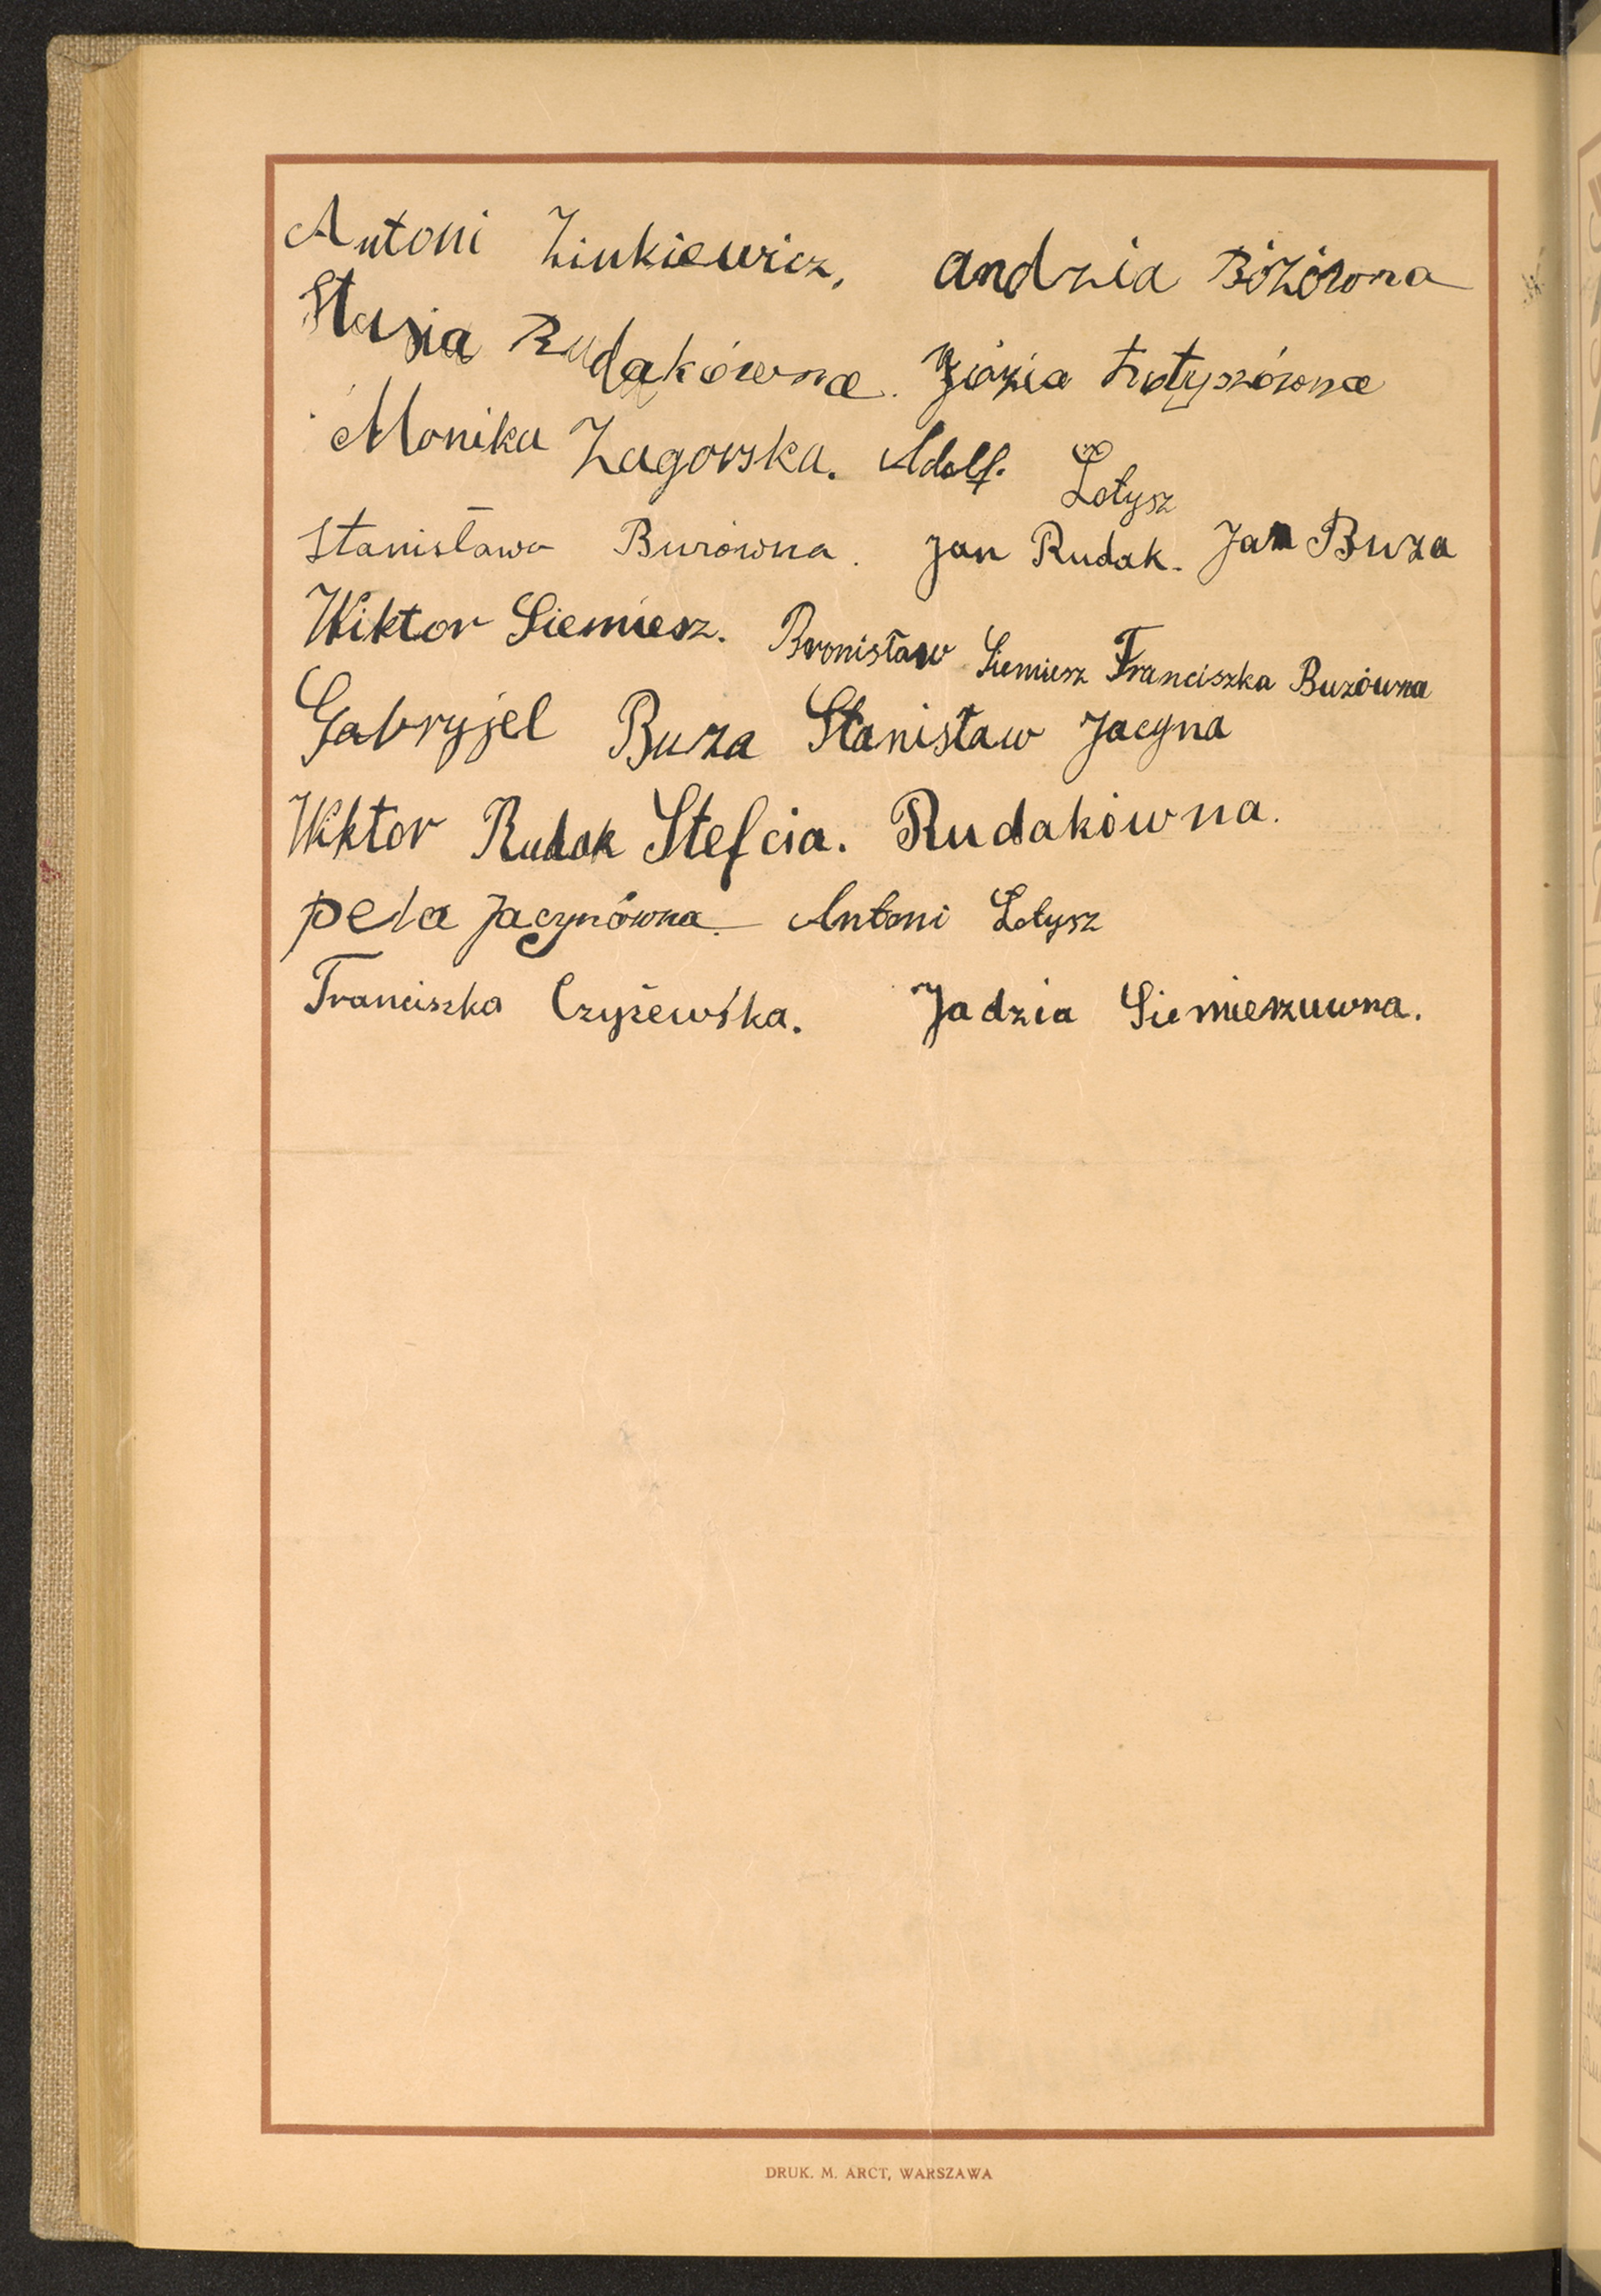 Antoni Zinkiewicz. andzia Bózówna
Stasia Rudakówna. Ziózia Łotyszówna
Monika Zagorska. Adolf. Łotysz
Stanisława Burówna. Jan Rudak. Jan Buza
Wiktor Siemiesz. Bronisław Siemiesz Franciszka Buzówna
Gabryjel Buza Stanisław Jacyna
Wiktor Rudak Stefcia. Rudakówna.
pela Jacynówna. Antoni Łotysz
Franciszka Czyżewska. Jadzia Siemieszuwna.
DRUK. M. ARCT, WARSZAWA